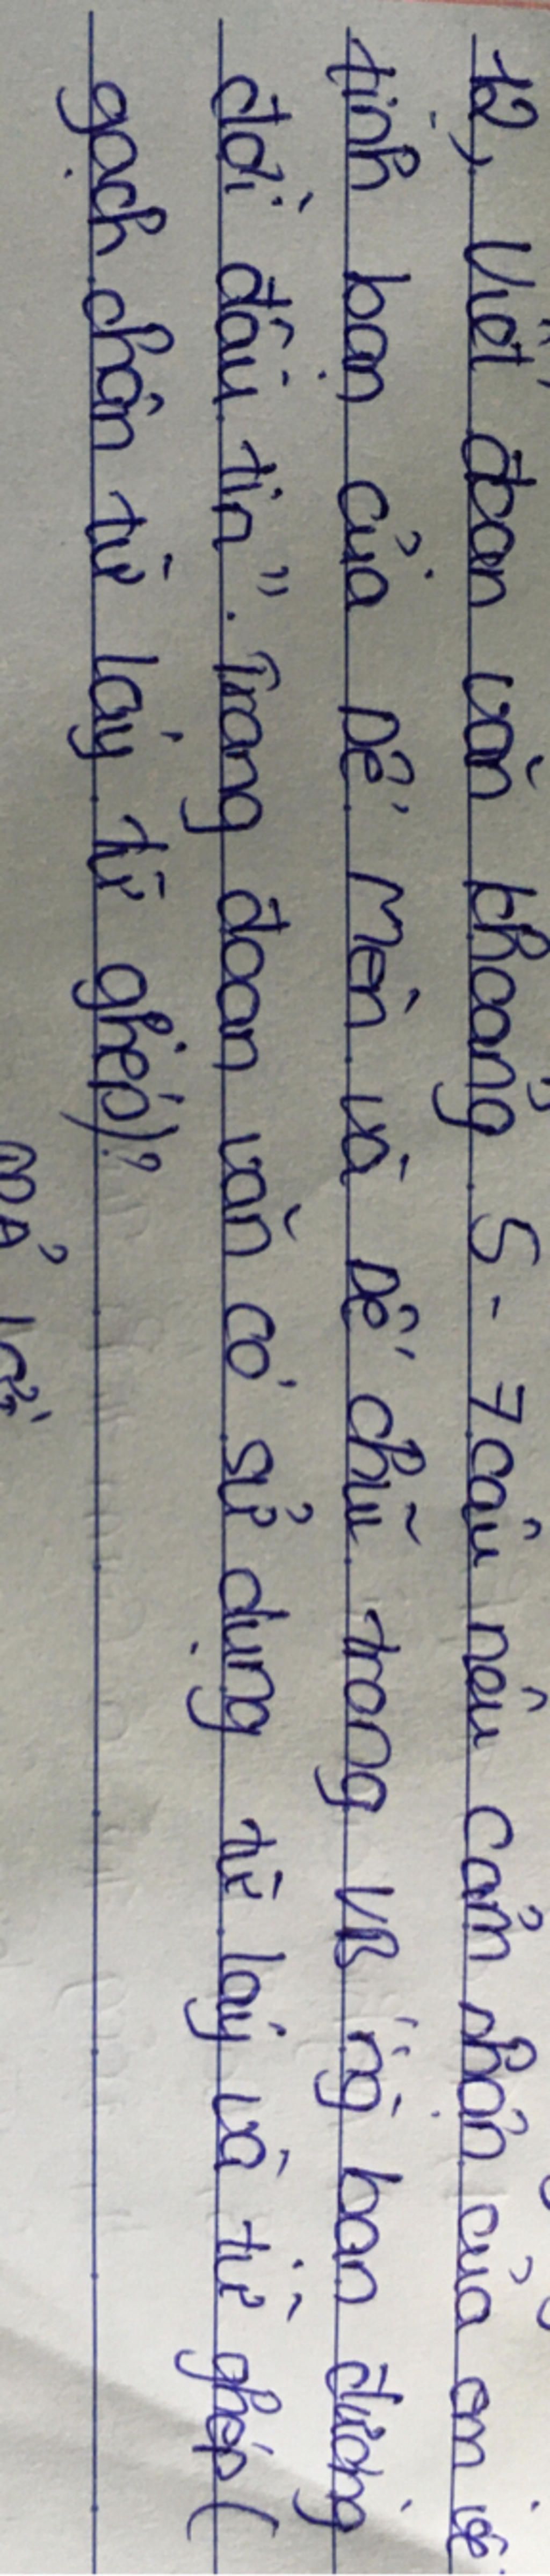 12, Viết đoạn văn khoảng 5 - 7 câu nêu cảm nhận của em về
tình bạn của Dế Mèn và Dế chũi trong VB "ng bạn đường
đời đầu tin". Trong đoạn văn có sử dụng từ láy và từ ghép (
gạch chân từ láy, từ ghép)?